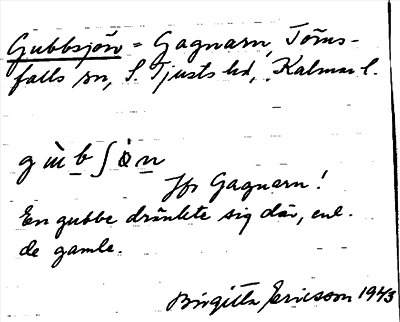 Gubbsjön = Gagnarn, Törns-
falls sn, S. Tjusts hd, Kalmar l.
Jfr Gagnarn!
En gubbe dränkte sig där, enl.
de gamle.
Birgitta Ericsson 1943